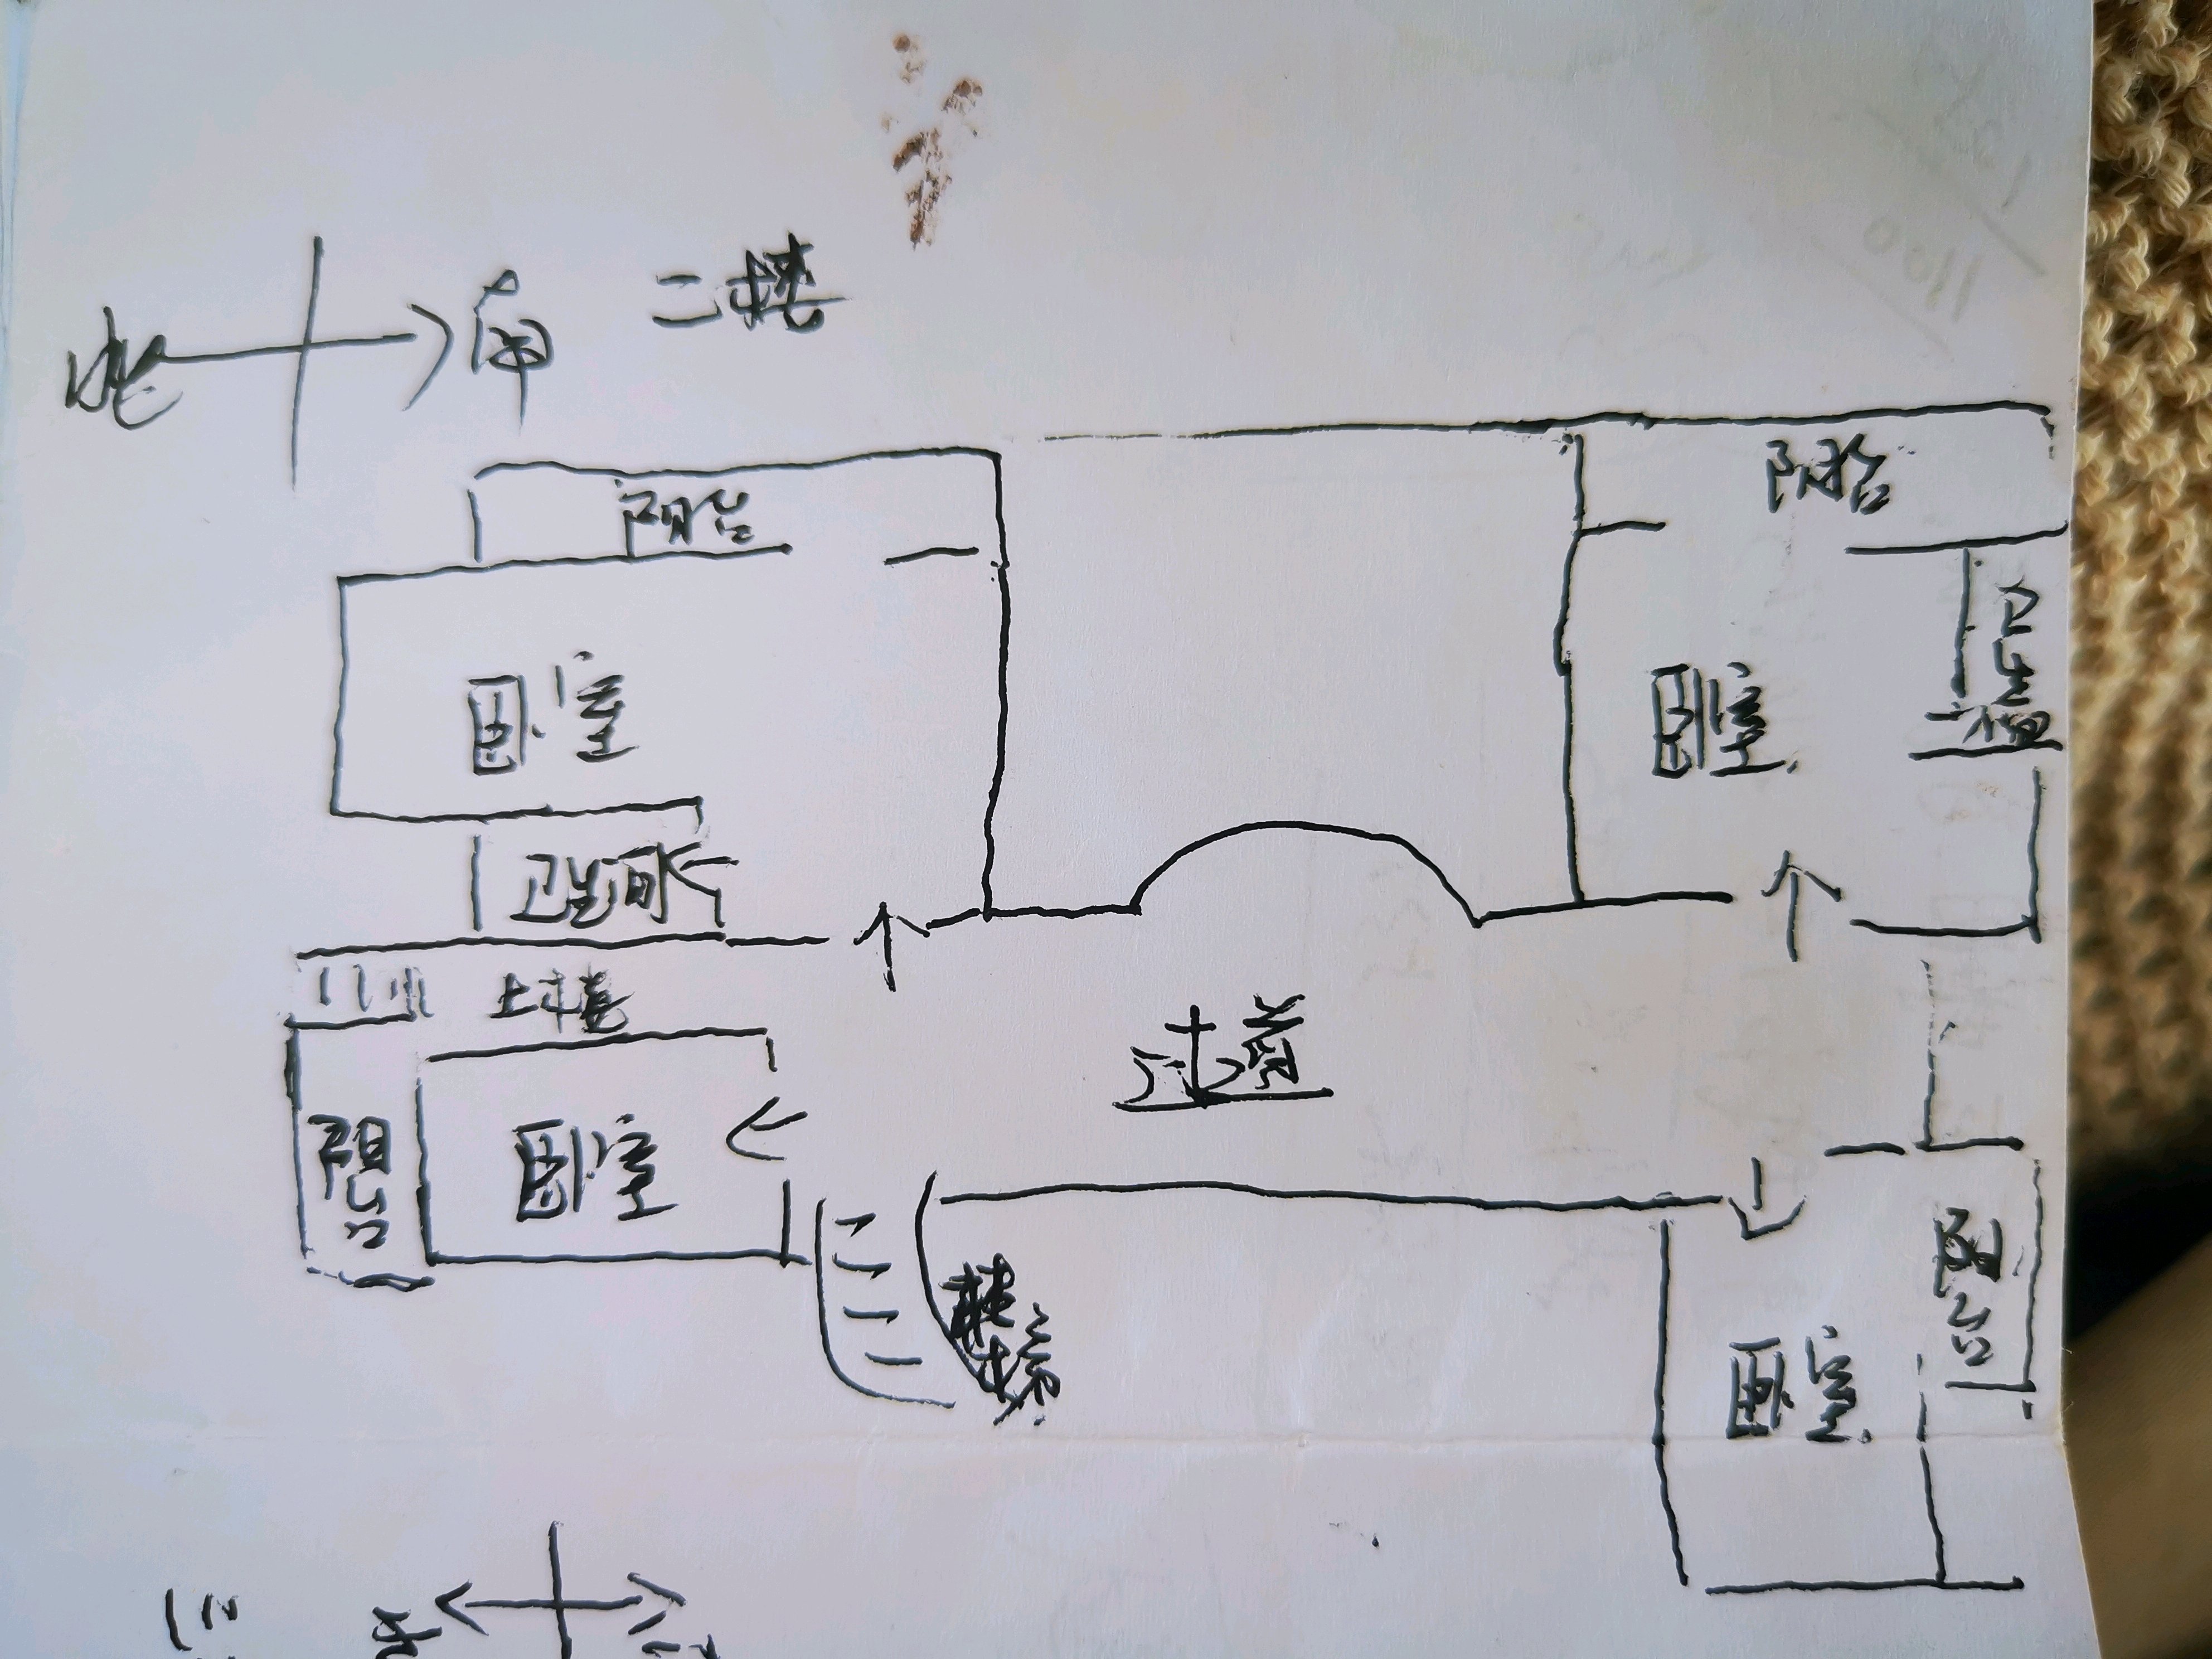 北 南 二楼
阳台
阳台
卧室
卧室
卫生间
卫生间
上楼
过道
阳台
卧室
楼梯
阳台
卧室
三
北